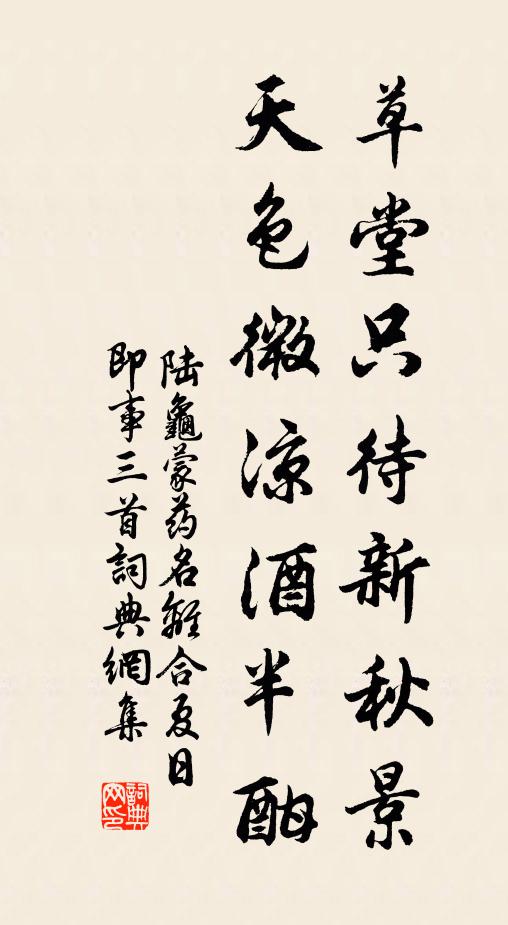 草堂只待新秋景
天色微涼酒半酣
陆龜蒙药名離合夏日
即事三首詞典網集
詞典网印